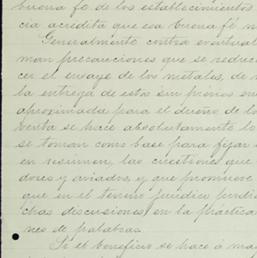 buena fe de los establecimientos
cia acredita que esa buena fe n
Generalmente contra eventual
man precauciones que se reduc
cer el ensaye de los metales, de
la entrega de estos sin previo en
aproximada para el dueño de lo
venta se hace absolutamente lo
se toman como base para fijar
en resumen, las cuestiones que
dores y aviados, y que promueve
que en el terreno juridico
chas discusiones en la práctica
nes de palabras.
Si el beneficio se hace á ma